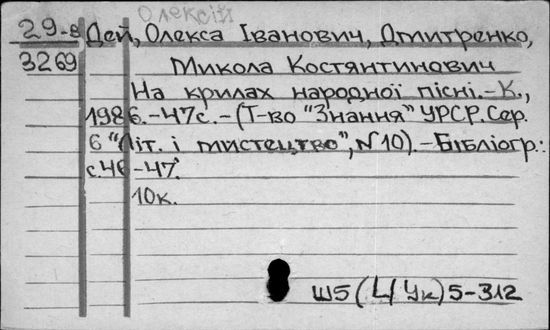 Олексій
29-в Дей, Олекса Іванович, Дмитренко,
3269 Микола Костянтинович
На крилах народної пісні.-К.,
1986.-47с.-(Т-во "Знання" УРСР.Сер.
6 "Літ. і мистецтво", N10).-Бібліогр.:
с.46-47.
10к.
Ш5(4Ук)5-312